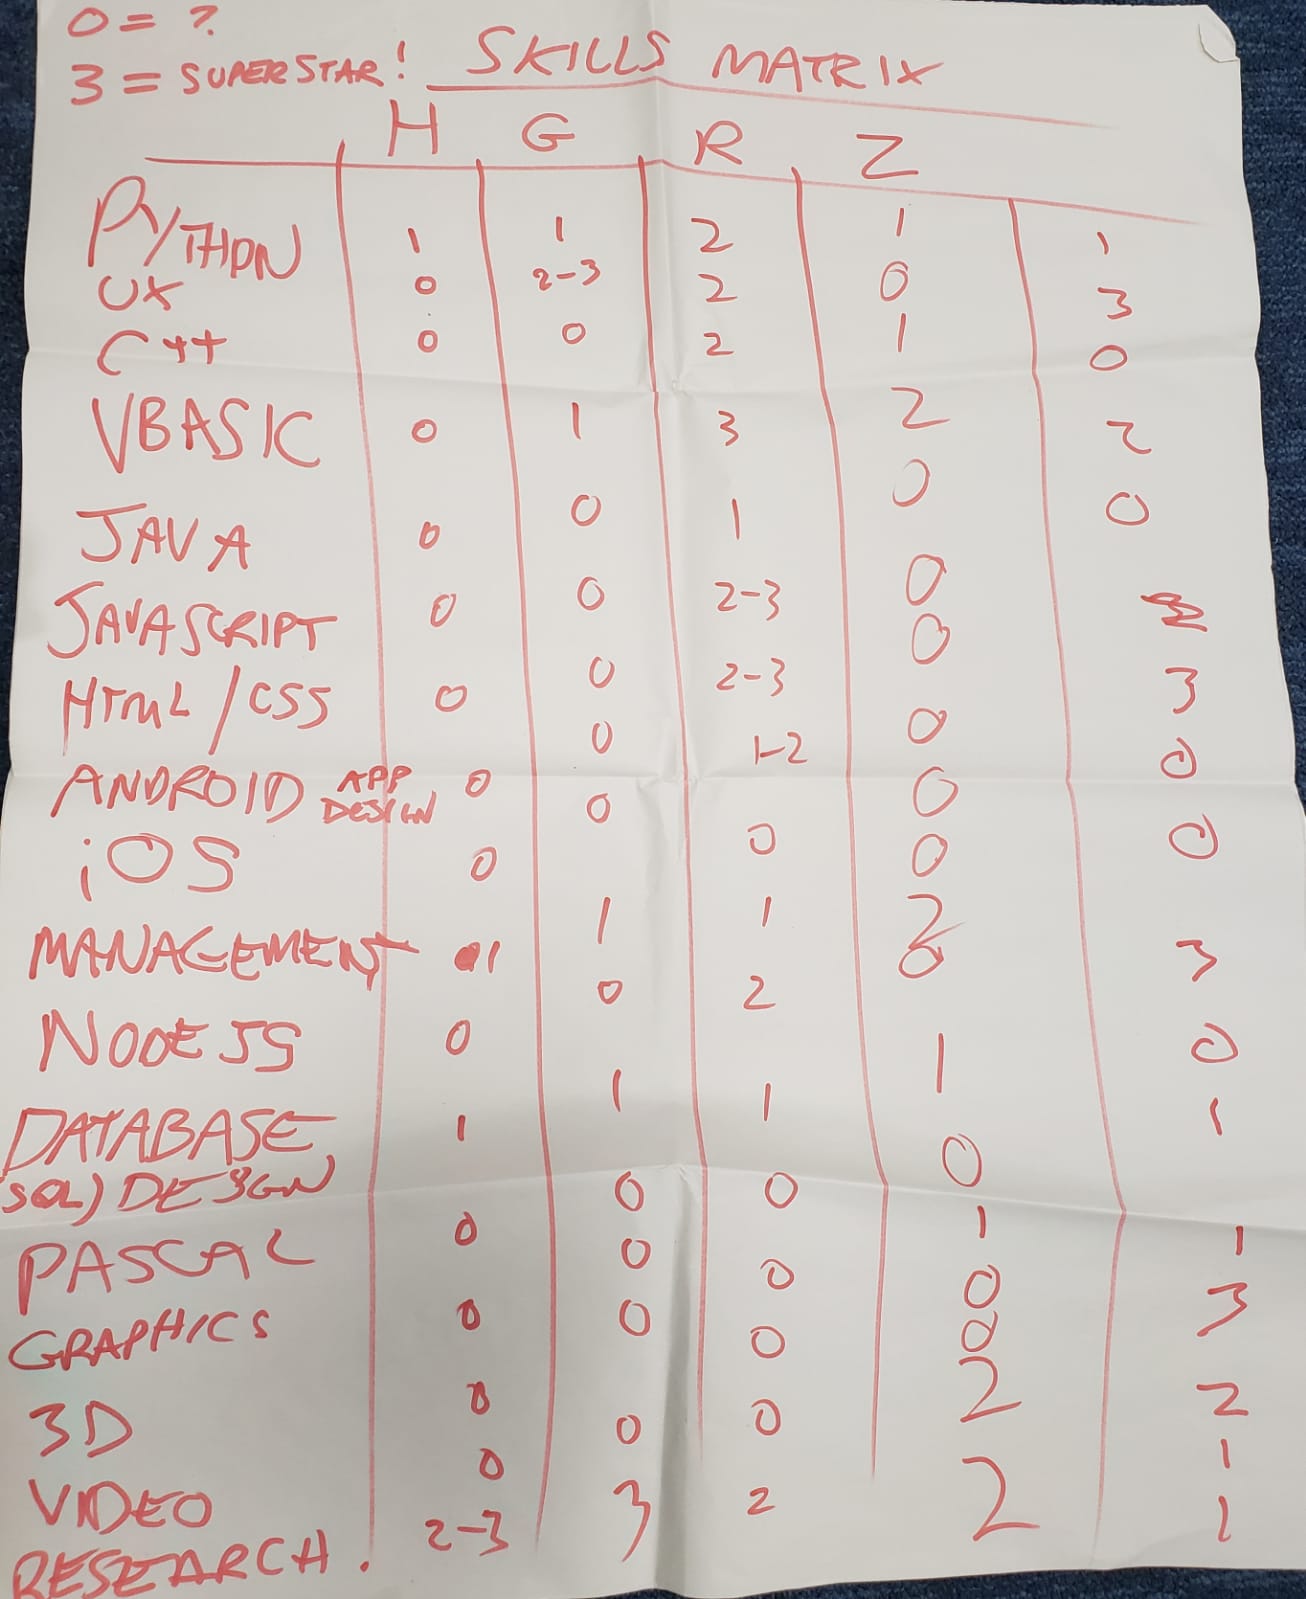 0 = ?
3 = SUPERSTAR!
SKILLS MATRIX
H G R Z
PYTHON 1 1 2 1 1
UX 0 2-3 2 0 3
C++ 0 0 2 1 0
VBASIC 0 1 3 2 2
JAVA 0 0 1 0 0
JAVASCRIPT 0 0 2-3 0
HTML/CSS 0 0 2-3 0 3
ANDROID APP DESIGN 0 0 1-2 0 0
iOS 0 0 0 0 0
0
MANAGEMENT 1 1 1 2 3
NODEJS 0 0 2 0 0
DATABASE 1 1 1 1 1
(SQL) DESIGN
PASCAL 0 0 0 0 1
GRAPHICS 0 0 0 1 3
3D 0 0 0 0 2
0
VIDEO 0 0 0 2 1
RESEARCH. 2-3 3 2 2 1